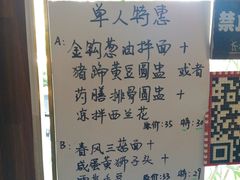 单人特惠
A: 金钩葱油拌面 +
猪蹄黄豆圆盅 或者
药膳排骨圆盅 +
凉拌西兰花
原价:35 特:30
B: 春风三菇面 +
咸蛋黄狮子头 +
原价:35 特:29
禁